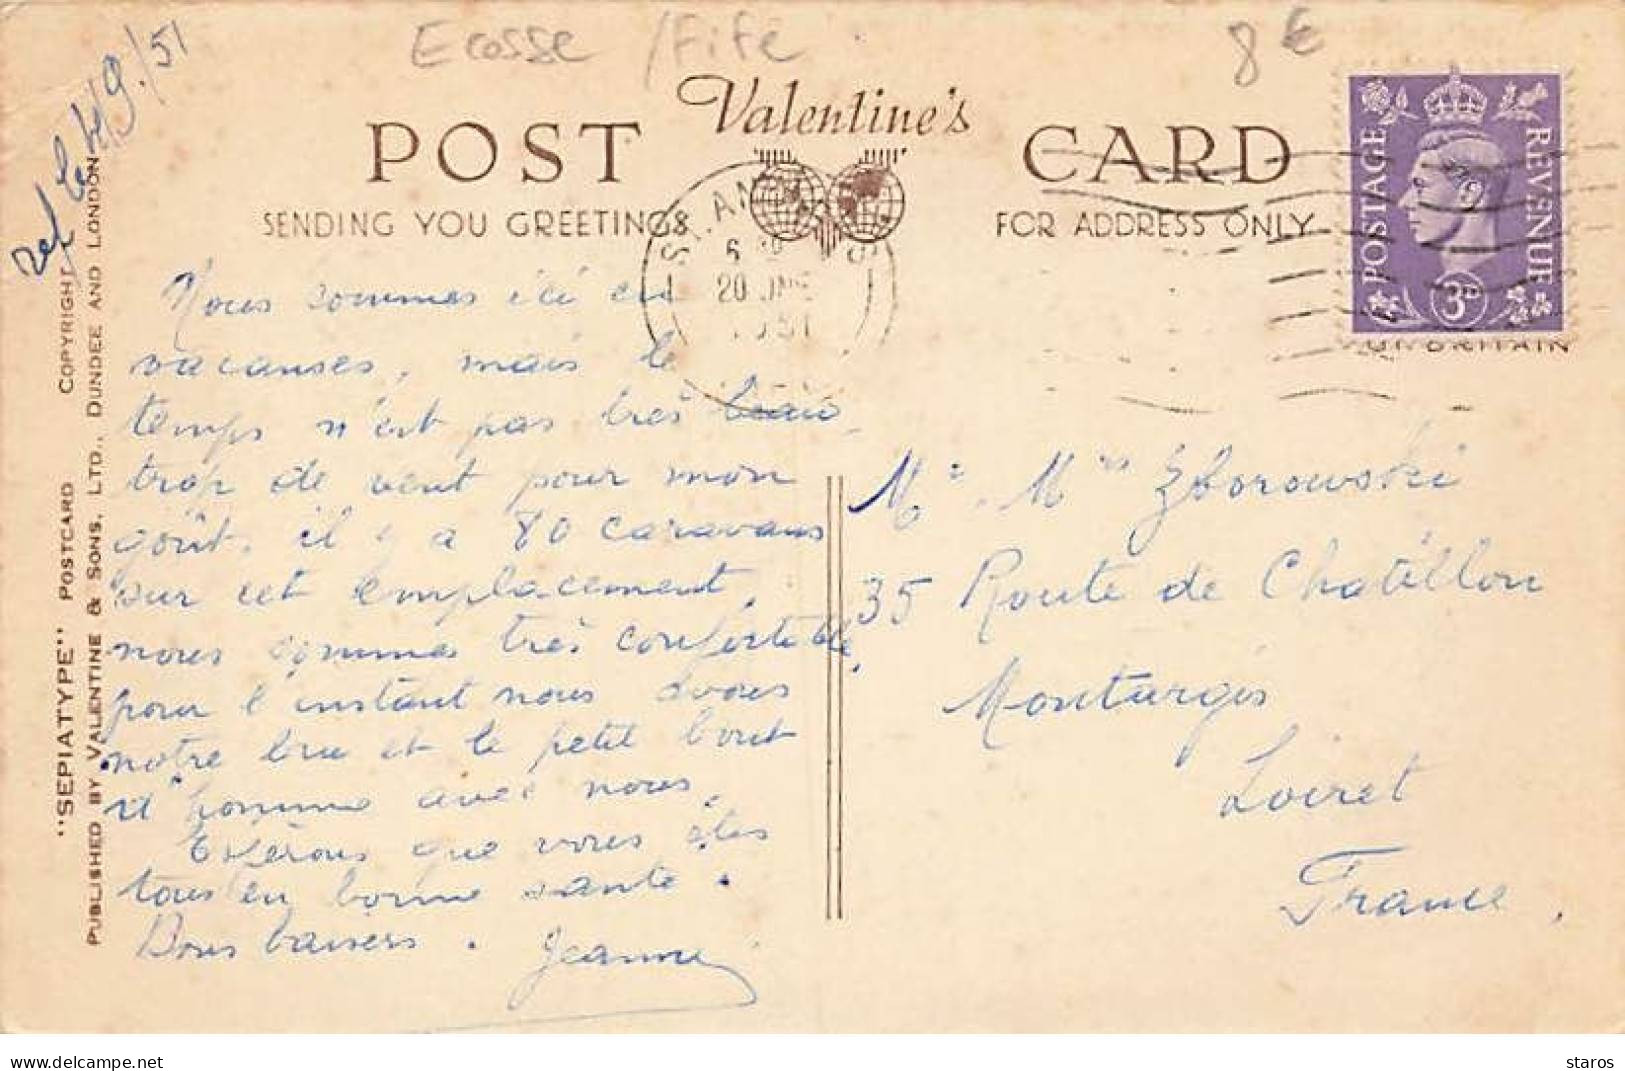 Ecosse / Fife
8 €
Valentine's
POST CARD
SENDING YOU GREETINGS
FOR ADDRESS ONLY
POSTAGE REVENUE
3D
ST. ANDREWS
20 JNE
1951
9/51
"SEPIATYPE" POSTCARD COPYRIGHT
PUBLISHED BY VALENTINE & SONS, LTD., DUNDEE AND LONDON
Nous sommes ici en
vacances, mais le
temps n'est pas très beau
trop de vent pour mon
goût. il y a 80 caravans
sur cet emplacement,
nous sommes très confortable.
pour l'instant nous avons
notre Lou et le petit bout
d'homme avec nous.
Espérons que vous êtes
tous en bonne santé.
Bons baisers. Jeanne
Mr. Mrs Zborowski
35 Route de Chatillon
Montargis
Loiret
France.
staros